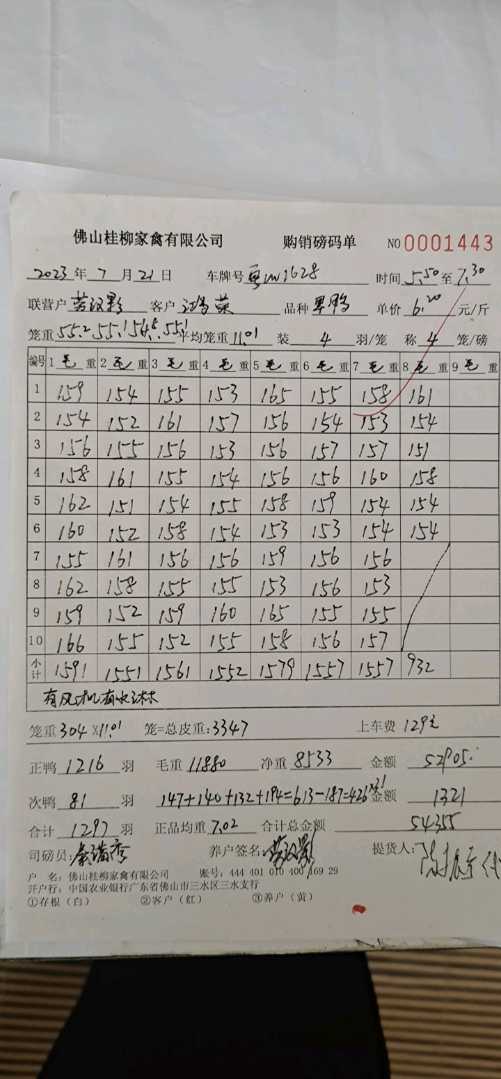 佛山桂柳家禽有限公司 购销磅码单 NO 0001443
2023年 7月 21日 车牌号 时间 5.50 至 7.30
联营户 客户 品种 单价 6.20 元/斤
笼重 55.2 55.1 54.8 55.1 平均笼重 11.01 装 4 羽/笼 称 4 笼/磅
编号 1 毛重 2 毛重 3 毛重 4 毛重 5 毛重 6 毛重 7 毛重 8 毛重 9 毛重
1 159 154 155 153 165 155 158 161
2 154 152 161 157 156 154 153 154
3 156 155 156 153 156 157 157 151
4 158 161 155 154 156 156 160 158
5 162 151 154 155 158 159 154 154
6 160 152 158 154 153 153 154 154
7 155 161 156 156 159 156 156
8 162 158 155 155 153 156 153
9 159 152 159 160 165 155 155
10 166 155 152 155 158 156 157
小计 1591 1551 1561 1552 1579 1557 1557 932
有风机有水
笼重 304 x11.01 笼=总皮重:3347 上车费 129元
正鸭 1216 羽 毛重 11880 净重 8533 金额 52905.
次鸭 81 羽 147+140+132+194=613-187=426 金额 1321
合计 1297 羽 正品均重 7.02 合计总金额 54355
司磅员: 养户签名: 提货人:
户 名：佛山桂柳家禽有限公司 账号：444 401 010 400 169 29
开户行：中国农业银行广东省佛山市三水区三水支行
①存根（白） ②客户（红） ③养户（黄）